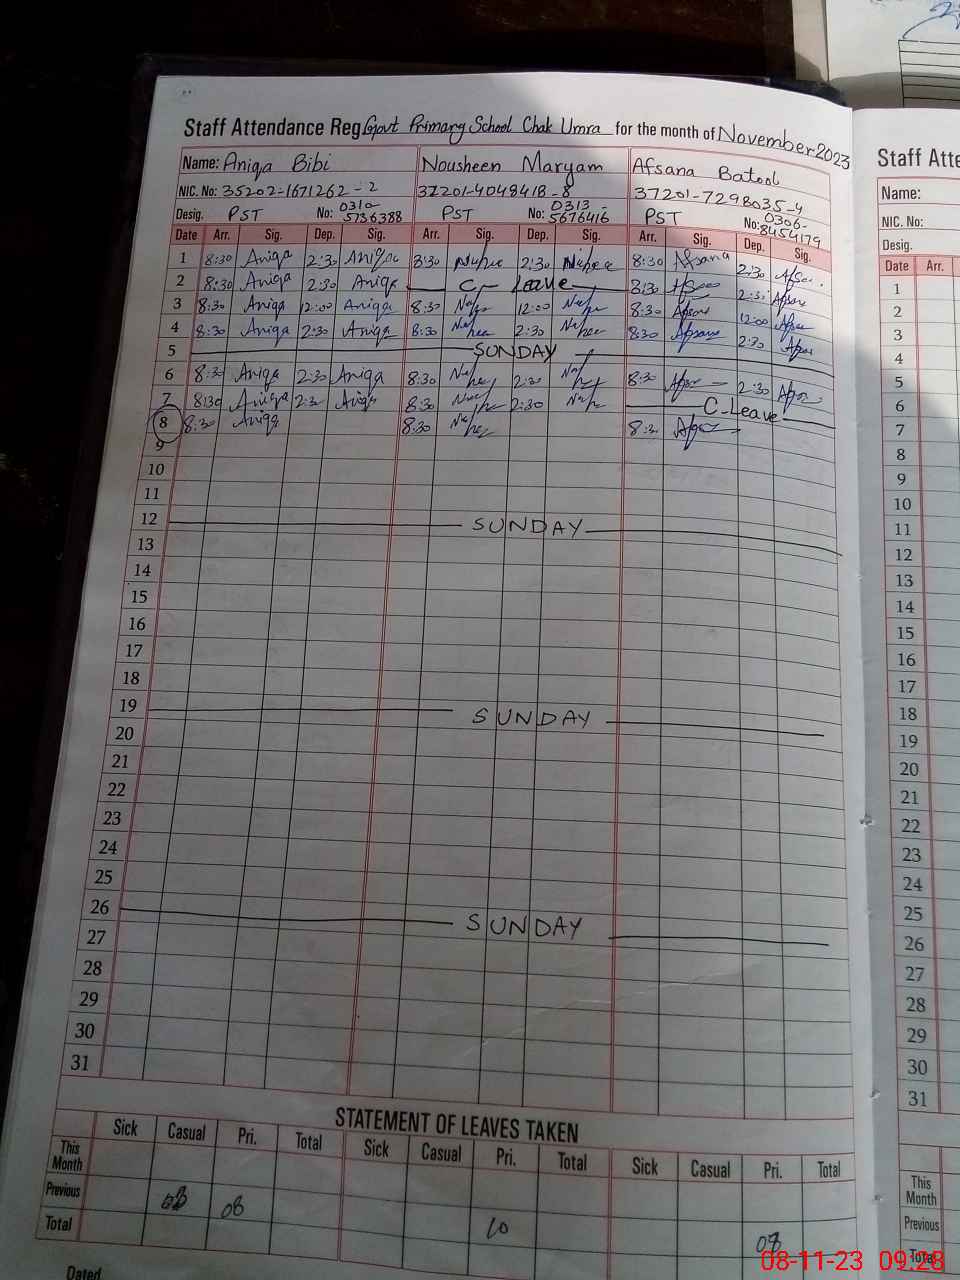 Staff Attendance Reg. Govt Primary School Chak Umra for the month of November 2023
Name: Aniqa Bibi Nousheen Maryam Afsana Batool
NIC. No: 35202-1671262-2 37201-4048418-8 37201-7298035-4
Desig. PST No: 0310-5736388 PST No: 0313-5676416 PST No: 0306-8454179
Date Arr. Sig. Dep. Sig. Arr. Sig. Dep. Sig. Arr. Sig. Dep. Sig.
1 8:30 Aniqa 2:30 Aniqa 8:30 2:30 8:30 Afsana 2:30
2 8:30 Aniqa 2:30 Aniqa C- Leave 8:30 2:30
3 8:30 Aniqa 12:00 Aniqa 8:30 12:00 8:30 12:00
4 8:30 Aniqa 2:30 Aniqa 8:30 2:30 8:30 2:30
5 SUNDAY
6 8:30 Aniqa 2:30 Aniqa 8:30 2:30 8:30 2:30
7 8:30 Aniqa 2:30 Aniqa 8:30 2:30 C-Leave
8 8:30 Aniqa 8:30 8:30
9
10
11
12 SUNDAY
13
14
15
16
17
18
19 SUNDAY
20
21
22
23
24
25
26 SUNDAY
27
28
29
30
31
STATEMENT OF LEAVES TAKEN
Sick Casual Pri. Total Sick Casual Pri. Total Sick Casual Pri. Total
This Month
Previous 08 06
Total 10 08
Dated
Staff Atte
Name:
NIC. No:
Desig.
Date Arr.
1
2
3
4
5
6
7
8
9
10
11
12
13
14
15
16
17
18
19
20
21
22
23
24
25
26
27
28
29
30
31
This Month
Previous
Total
08-11-23 09:28